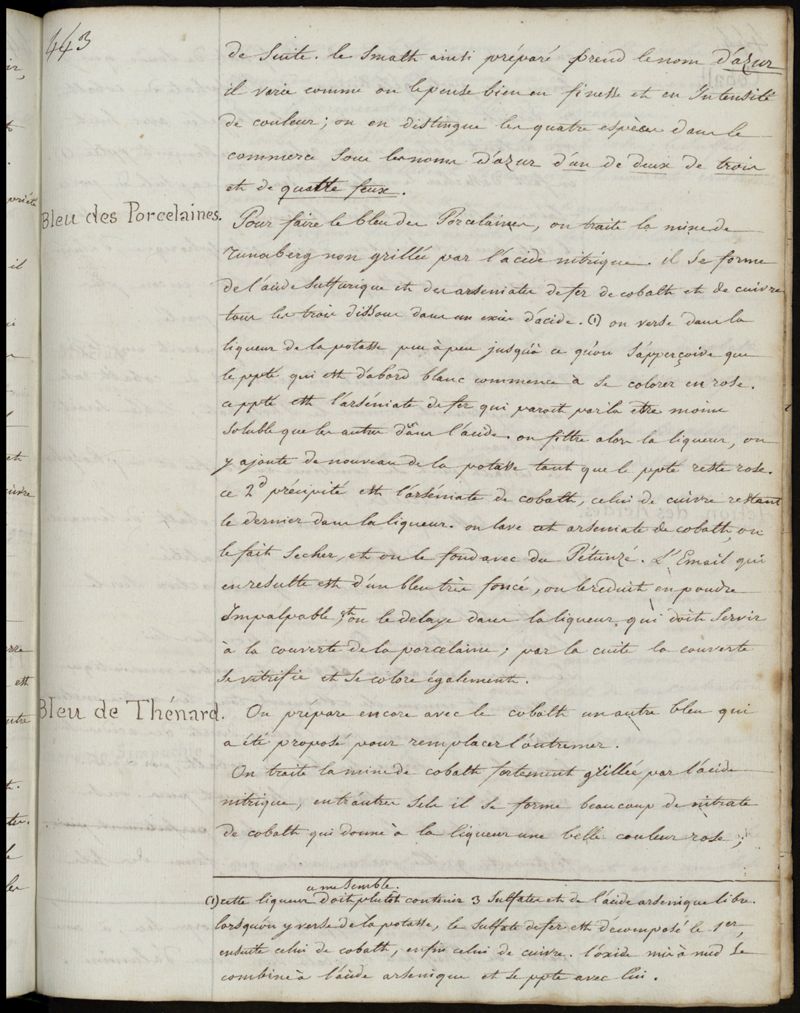 443
de suite. le Smalh ainsi préparé prend le nom d'azur
il varie comme on le pense bien en finesse et en Intensité
de couleur; on en distingue les quatre espèces dans le
commerce sous les noms d'azur d'un de deux de trois
et de quatre feux.
Bleu des Porcelaines.
Pour faire le bleu des Porcelaines, on traite la mine de
Tunaberg non grillée par l'acide nitrique. il se forme
de l'acide sulfurique et des arseniates de fer de cobalt et de cuivre
tous les trois dissous dans un excès d'acide. (1) on verse dans la
liqueur de la potasse peu à peu jusqu'à ce qu'on s'apperçoive que
le ppté qui est d'abord blanc commence à se colorer en rose.
ce ppté est l'arséniate de fer qui paroit par là être moins
soluble que les autres dans l'acide. on filtre alors la liqueur, on
y ajoute de nouveau de la potasse tant que le ppté reste rose.
ce 2d précipité est l'arséniate de cobalt, celui de cuivre restant
le dernier dans la liqueur. on lave cet arseniate de cobalt, on
le fait secher, et on le fond avec du Pétunzé. L'Email qui
en resulte est d'un bleu très foncé, on le reduit en poudre
Impalpable, et on le delaye dans la liqueur qui doit servir
à la couverte de la porcelaine; par la cuite la couverte
se vitrifie et se colore également.
Bleu de Thénard.
On prépare encore avec le cobalt un autre bleu qui
a été proposé pour remplacer l'outremer.
On traite la mine de cobalt fortement grillée par l'acide
nitrique, entr'autres sels il se forme beaucoup de nitrate
de cobalt qui donne à la liqueur une belle couleur rose;
a me semble.
(1) cette liqueur doit plutôt contenir 3 sulfates et de l'acide arsenique libre.
lorsqu'on y verse de la potasse, le sulfate de fer est décomposé le 1er,
ensuite celui de cobalt, enfin celui de cuivre. l'oxide mis à nud se
combine à l'acide arsenique et se ppte avec lui.